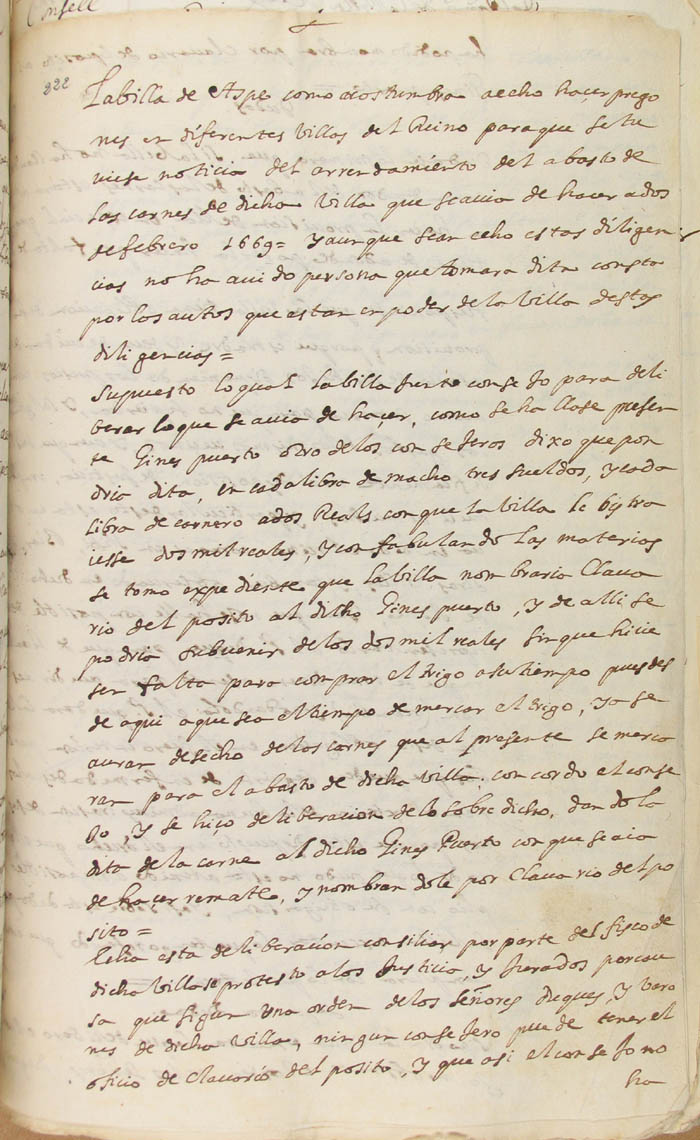 Consell
222
Labilla de Aspe como acostumbra aecho haçer prego
nes en diferentes villas del Reino paraque setu
viese noticia del arrendamiento del abasto de
las carnes de dicha Villa que seavia de hacer ados
defebrero 1669= Yaunque sean echo estas diligen
cias no ha avido persona que tomara dita consta
por los autos que estan en poder de la Villa destas
diligencias=
Supuesto loqual labilla junto consejo para deli
berar loque se avia de haçer, como se hallase presen
te Gines puerto otro delos consejeros dixo que pon
dria dita, en cadalibra de macho tres sueldos, y cada
libra de carnero ados Reals con que la Villa le bistra
iesse dos mil reales, Y confabulando las materias
se tomo expediente que labilla nombraria Clava
rio del posito al dicho Gines puerto, Y de alli se
podria subvenir delos dos mil reales sin que hicie
sen falta para comprar el trigo asutiempo pues des
de aqui aque sea el tiempo de mercar el trigo, Ya se
auran desecho delas carnes que al presente se merca
ran para el abasto de dicha villa, concordo el conse
jo, Y se hiço deliberacion de lo sobre dicho, dando la
dita de la carne al dicho Gines Puerto con que seaia
de hacer remate, Y nombrandole por Clavario del po
sito=
Echa esta deliberacion consiliar por parte del fisco de
dicha Villa se protesto alos Justicia, Y Jurados por cau
sa que sigun una orden de los señores duques, Y varo
nes de dicha Villa, ningun consejero puede tener el
oficio de Clavario del posito, Y que asi el consejo no
ha